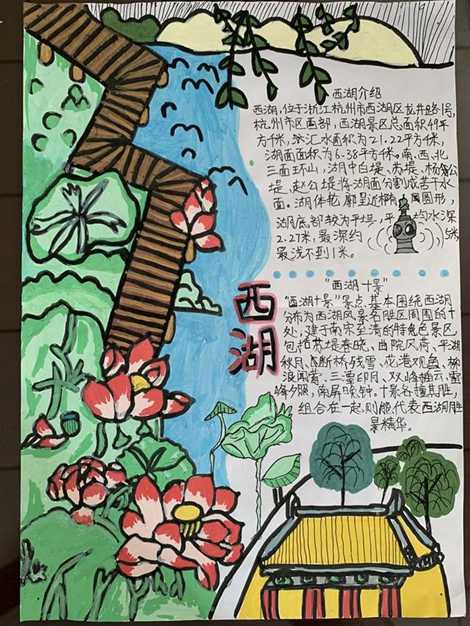 西湖介绍
西湖,位于浙江杭州市西湖区龙井路1号,
杭州市区西部,西湖景区总面积49平
方千米,汇水面积为21.22平方千米,
湖面面积为6.38平方千米。南、西、北
三面环山,湖中白堤、苏堤、杨公
堤、赵公堤将湖面分割成若干水
面。湖体轮廓呈近椭圆形,
湖底部较为平坦,平均水深
2.27米,最深约米,
最浅不到1米。
"西湖十景"
"西湖十景"景点基本围绕西湖
分布为西湖风景名胜区周围的十
处,建于南宋至清的特色景区,
包括苏堤春晓、曲院风荷、平湖
秋月、断桥残雪、花港观鱼、柳
浪闻莺、三潭印月、双峰插云、雷
峰夕照、南屏晚钟。十景各擅其胜,
组合在一起,则能代表西湖胜
景精华。
西湖